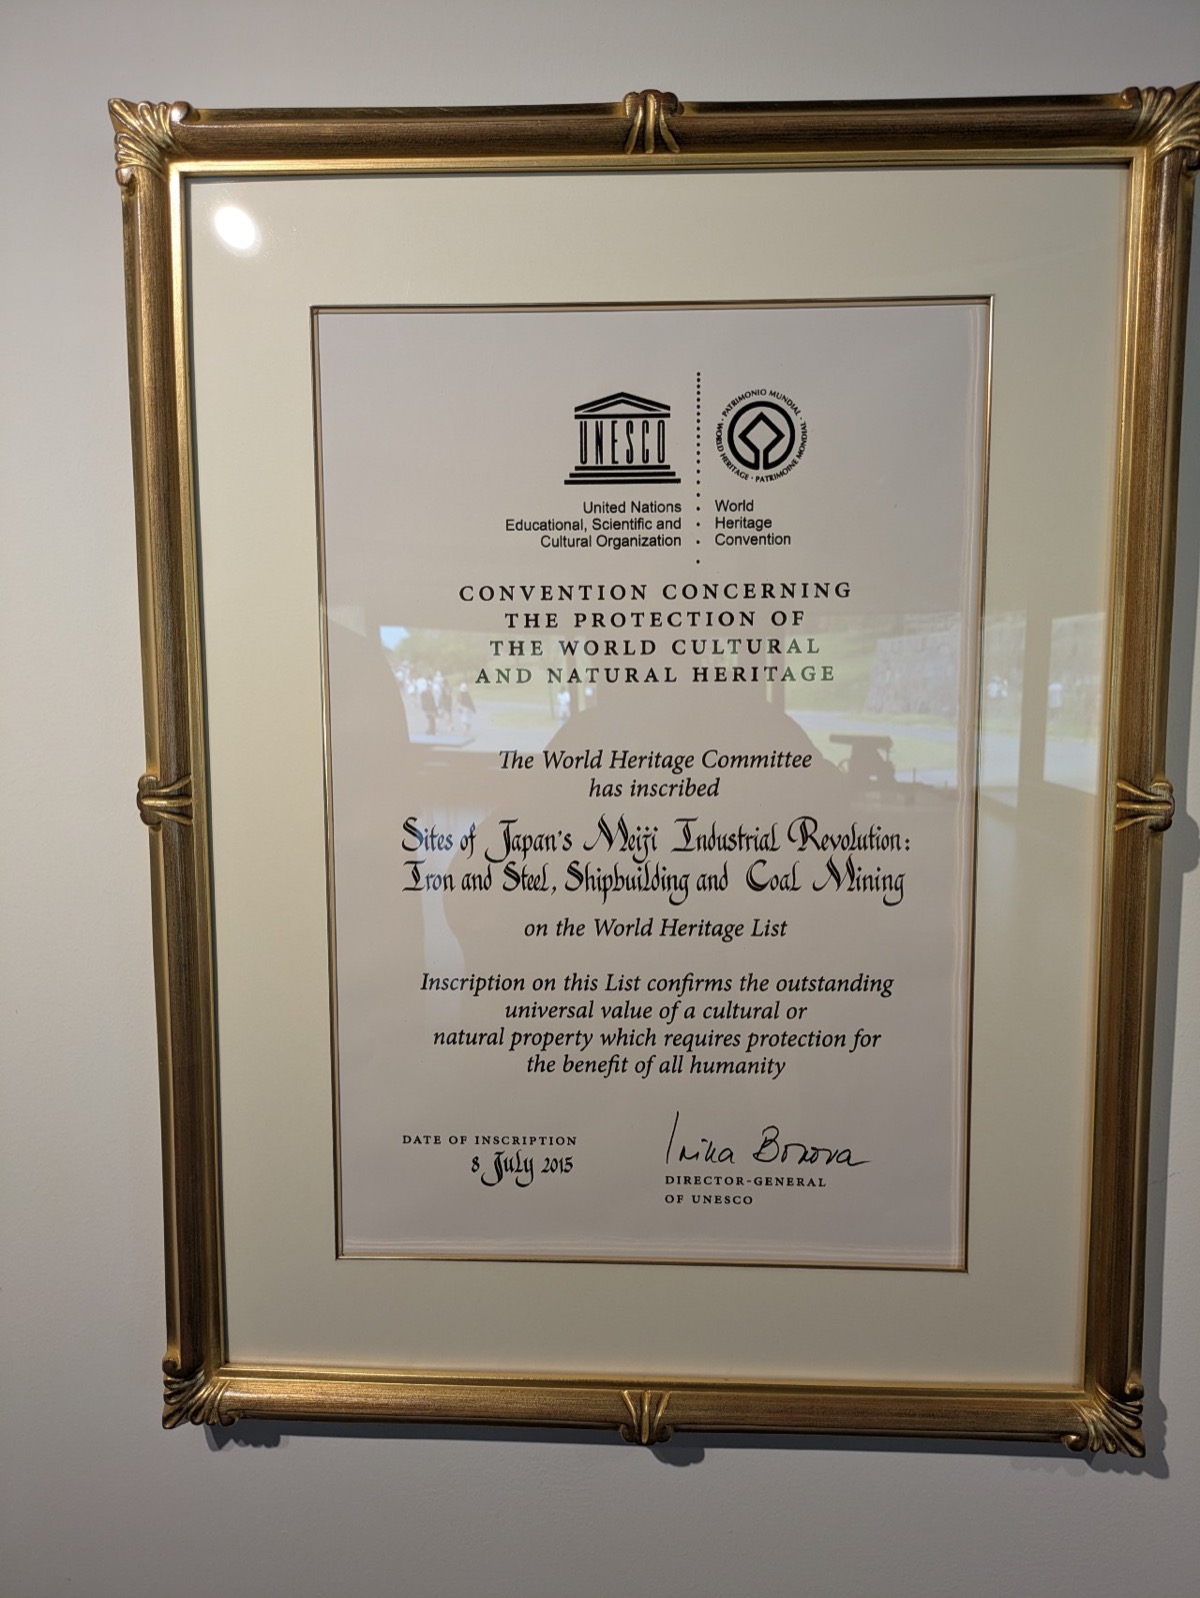 UNESCO
PATRIMONIO MUNDIAL · WORLD HERITAGE · PATRIMOINE MONDIAL ·
United Nations
Educational, Scientific and
Cultural Organization
World
Heritage
Convention
CONVENTION CONCERNING
THE PROTECTION OF
THE WORLD CULTURAL
AND NATURAL HERITAGE
The World Heritage Committee
has inscribed
Sites of Japan's Meiji Industrial Revolution:
Iron and Steel, Shipbuilding and Coal Mining
on the World Heritage List
Inscription on this List confirms the outstanding
universal value of a cultural or
natural property which requires protection for
the benefit of all humanity
DATE OF INSCRIPTION
8 July 2015
Irina Bokova
DIRECTOR-GENERAL
OF UNESCO